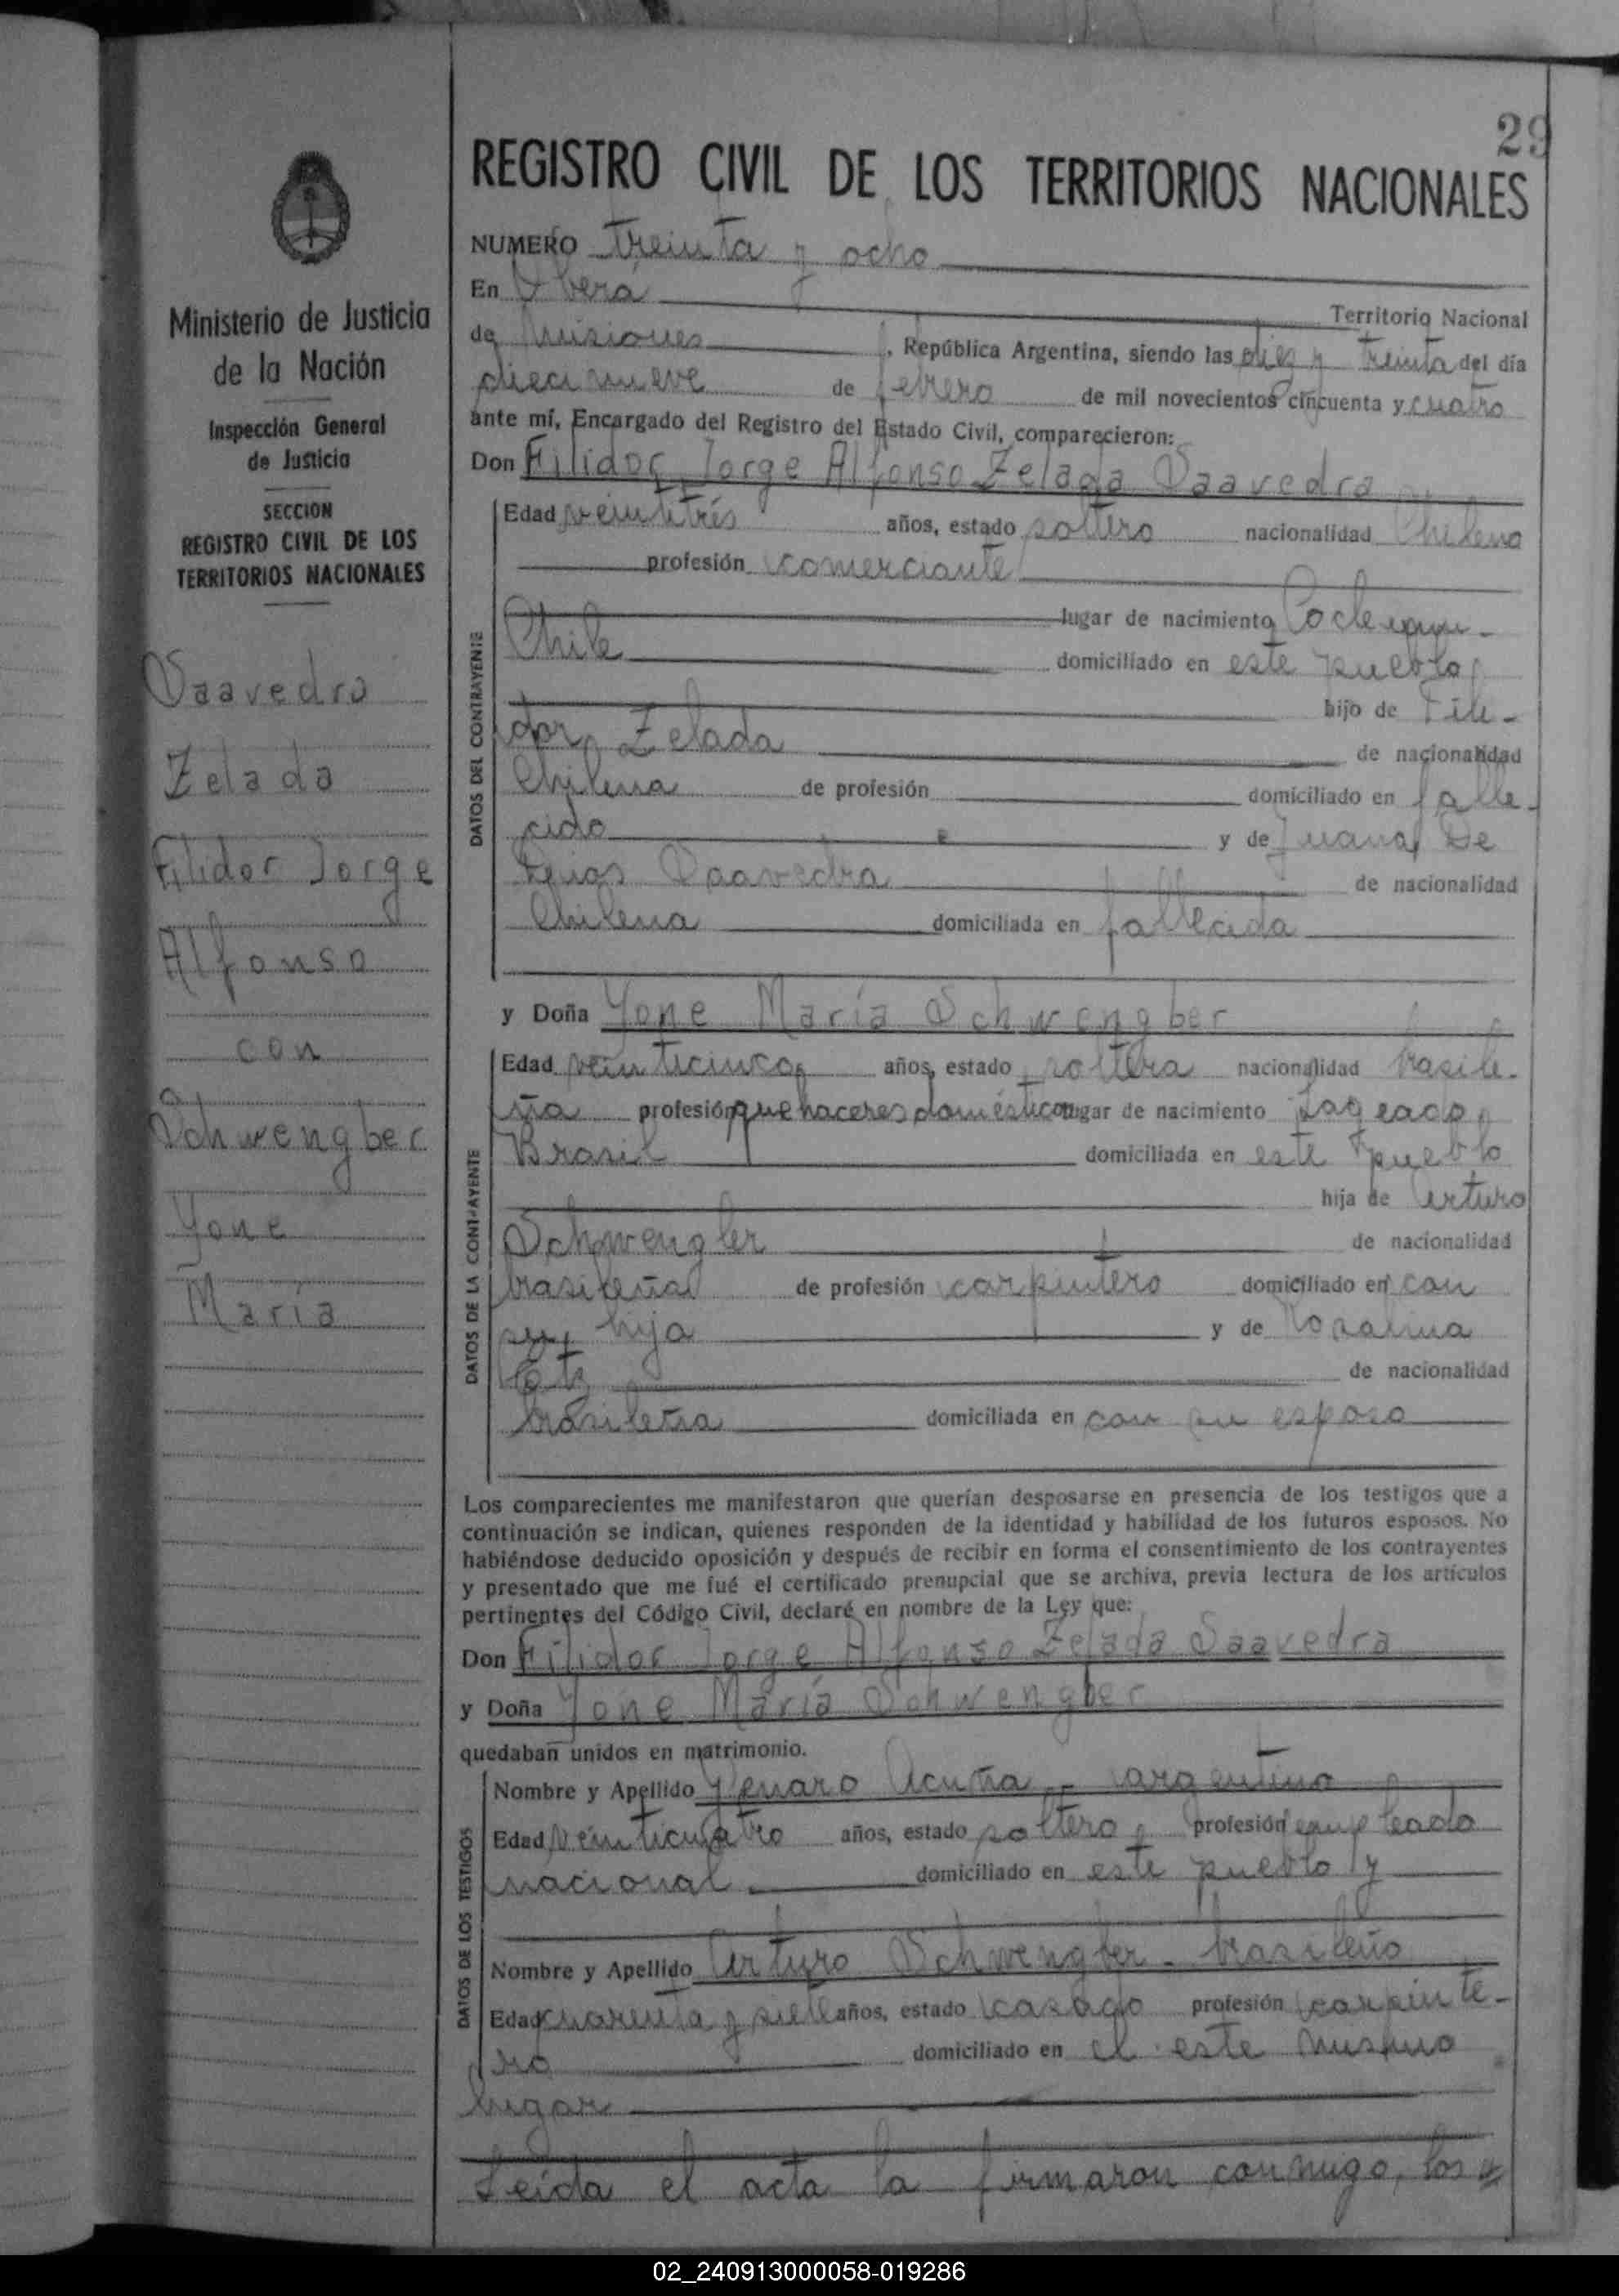 29
REGISTRO CIVIL DE LOS TERRITORIOS NACIONALES
NUMERO treinta y ocho
En Oberá Territorio Nacional
de Misiones, República Argentina, siendo las diez y treinta del día
diecinueve de febrero de mil novecientos cincuenta y cuatro
ante mí, Encargado del Registro del Estado Civil, comparecieron:
Don Filidor Jorge Alfonso Zelada Saavedra
Edad veintitrés años, estado soltero nacionalidad Chilena
profesión comerciante
lugar de nacimiento
Chile domiciliado en este pueblo
hijo de Fili-
dor Zelada de nacionalidad
Chilena de profesión domiciliado en falle-
cido y de Juana De
Saavedra de nacionalidad
Chilena domiciliada en fallecida
y Doña Yone María Schwengber
Edad veinticinco años, estado soltera nacionalidad brasile-
ña profesión quehaceres domésticos lugar de nacimiento Lageado,
Brasil domiciliada en este pueblo
hija de Arturo
Schwengber de nacionalidad
brasileña de profesión carpintero domiciliado en con
su hija y de Rosalina
de nacionalidad
brasileña domiciliada en con su esposo
Los comparecientes me manifestaron que querían desposarse en presencia de los testigos que a
continuación se indican, quienes responden de la identidad y habilidad de los futuros esposos. No
habiéndose deducido oposición y después de recibir en forma el consentimiento de los contrayentes
y presentado que me fué el certificado prenupcial que se archiva, previa lectura de los artículos
pertinentes del Código Civil, declaré en nombre de la Ley que:
Don Filidor Jorge Alfonso Zelada Saavedra
y Doña Yone María Schwengber
quedaban unidos en matrimonio.
Nombre y Apellido Yenaro Acuña - argentino
Edad veinticuatro años, estado soltero, profesión empleado
nacional domiciliado en este pueblo y
Nombre y Apellido Arturo Schwengber - brasileño
Edad cuarenta y siete años, estado casado profesión carpinte-
ro domiciliado en el este mismo
lugar
Leída el acta la firmaron conmigo, los
DATOS DEL CONTRAYENTE
DATOS DE LA CONTRAYENTE
DATOS DE LOS TESTIGOS
Ministerio de Justicia
de la Nación
Inspección General
de Justicia
SECCION
REGISTRO CIVIL DE LOS
TERRITORIOS NACIONALES
Saavedra
Zelada
Filidor Jorge
Alfonso
con
Schwengber
Yone
María
02_240913000058-019286